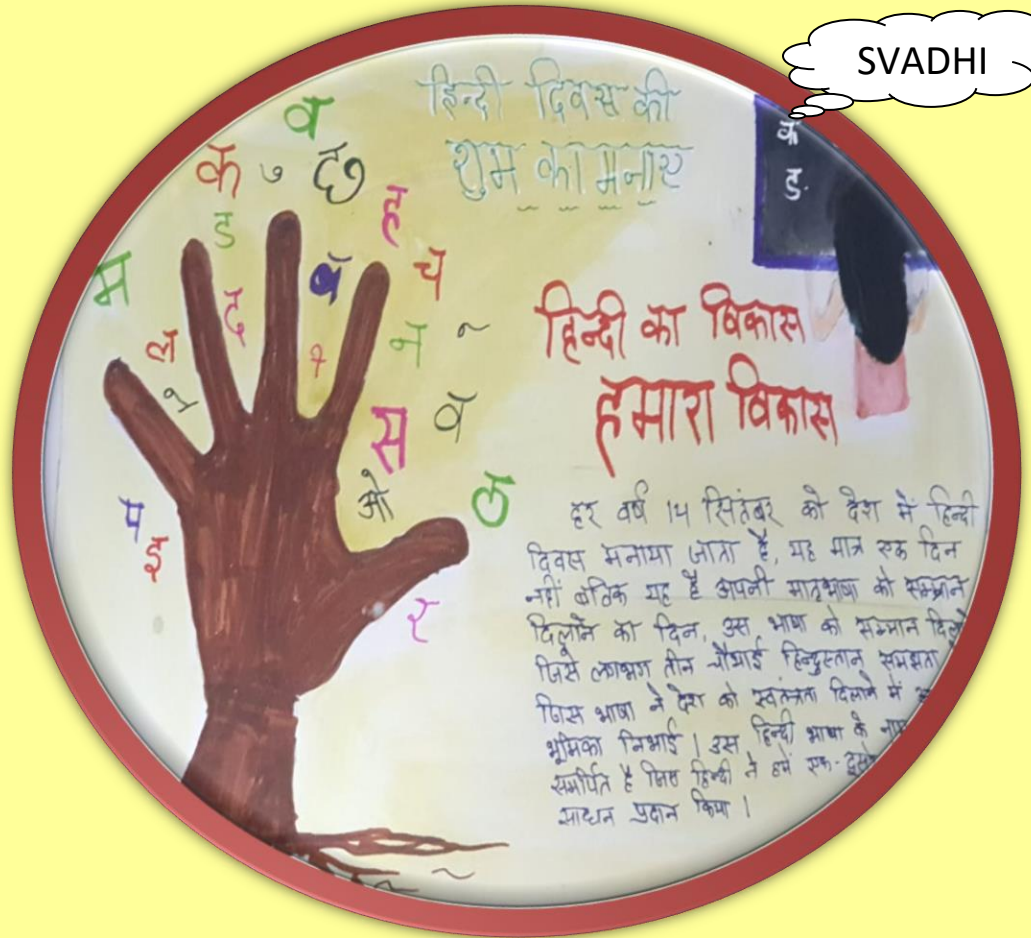 SVADHI
हिन्दी दिवस की
शुभ कामनाए
क
ड
व
क ७ छ
ह
ड
म
च
द
ल
न
स व
ओ
ठ
प
इ
र
हिन्दी का विकास
हमारा विकास
हर वर्ष 14 सितंबर को देश में हिन्दी
दिवस मनाया जाता है, यह मात्र एक दिन
नहीं बल्कि यह है अपनी मातृभाषा को सम्मान
दिलाने का दिन, उस भाषा को सम्मान
जिसे लगभग तीन चौथाई हिन्दुस्तान समझता
जिस भाषा ने देश को स्वतंत्रता दिलाने में
भूमिका निभाई । उस हिन्दी भाषा के
समर्पित है जिस हिन्दी ने हमें एक-
साधन प्रदान किया ।